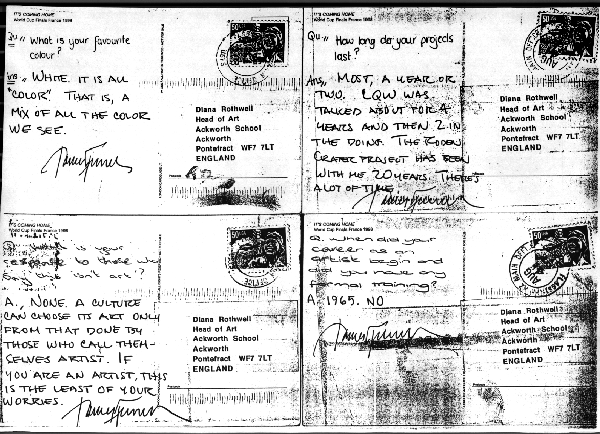 IT'S COMING HOME
World Cup Finale France 1998
Qu,, What is your favourite
colour?
Ans,, WHITE. IT IS ALL
"COLOR". THAT IS, A
MIX OF ALL THE COLOR
WE SEE.
Diana Rothwell
Head of Art
Ackworth School
Ackworth
Pontefract WF7 7LT
ENGLAND
IT'S COMING HOME
World Cup Finale France 1998
Qu,, How long do your projects
last?
Ans,, MOST, A YEAR OR
TWO. LQW WAS
TALKED ABOUT FOR 4
YEARS AND THEN 2 IN
THE DOING. THE RODEN
CRATER PROJECT HAS BEEN
WITH ME 20 YEARS. THERE'S
A LOT OF TIME.
Diana Rothwell
Head of Art
Ackworth School
Ackworth
Pontefract WF7 7LT
ENGLAND
IT'S COMING HOME
World Cup Finale France 1998
is your
response to those who
say this isn't art?
A., NONE. A CULTURE
CAN CHOOSE ITS ART ONLY
FROM THAT DONE BY
THOSE WHO CALL THEM-
SELVES ARTIST. IF
YOU ARE AN ARTIST, THIS
IS THE LEAST OF YOUR
WORRIES.
Diana Rothwell
Head of Art
Ackworth School
Ackworth
Pontefract WF7 7LT
ENGLAND
IT'S COMING HOME
World Cup Finale France 1998
Q. When did your
career as an
artist begin and
did you have any
formal training?
A. 1965. NO
Diana Rothwell
Head of Art
Ackworth School
Ackworth
Pontefract WF7 7LT
ENGLAND